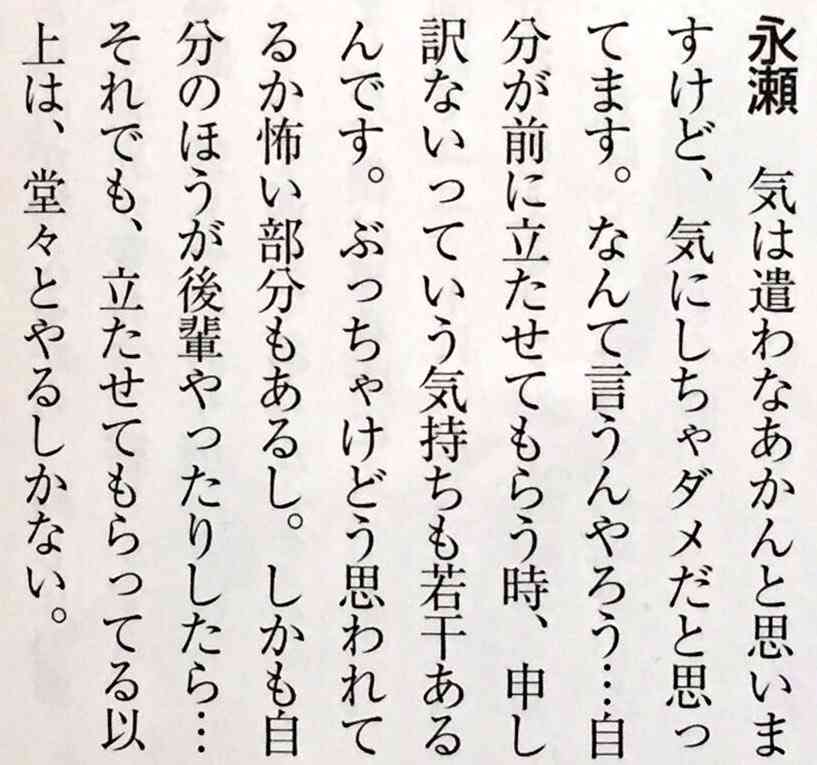 永瀬　気は遣わなあかんと思いま
すけど、気にしちゃダメだと思っ
てます。なんて言うんやろう…自
分が前に立たせてもらう時、申し
訳ないっていう気持ちも若干ある
んです。ぶっちゃけどう思われて
るか怖い部分もあるし。しかも自
分のほうが後輩やったりしたら…
それでも、立たせてもらってる以
上は、堂々とやるしかない。